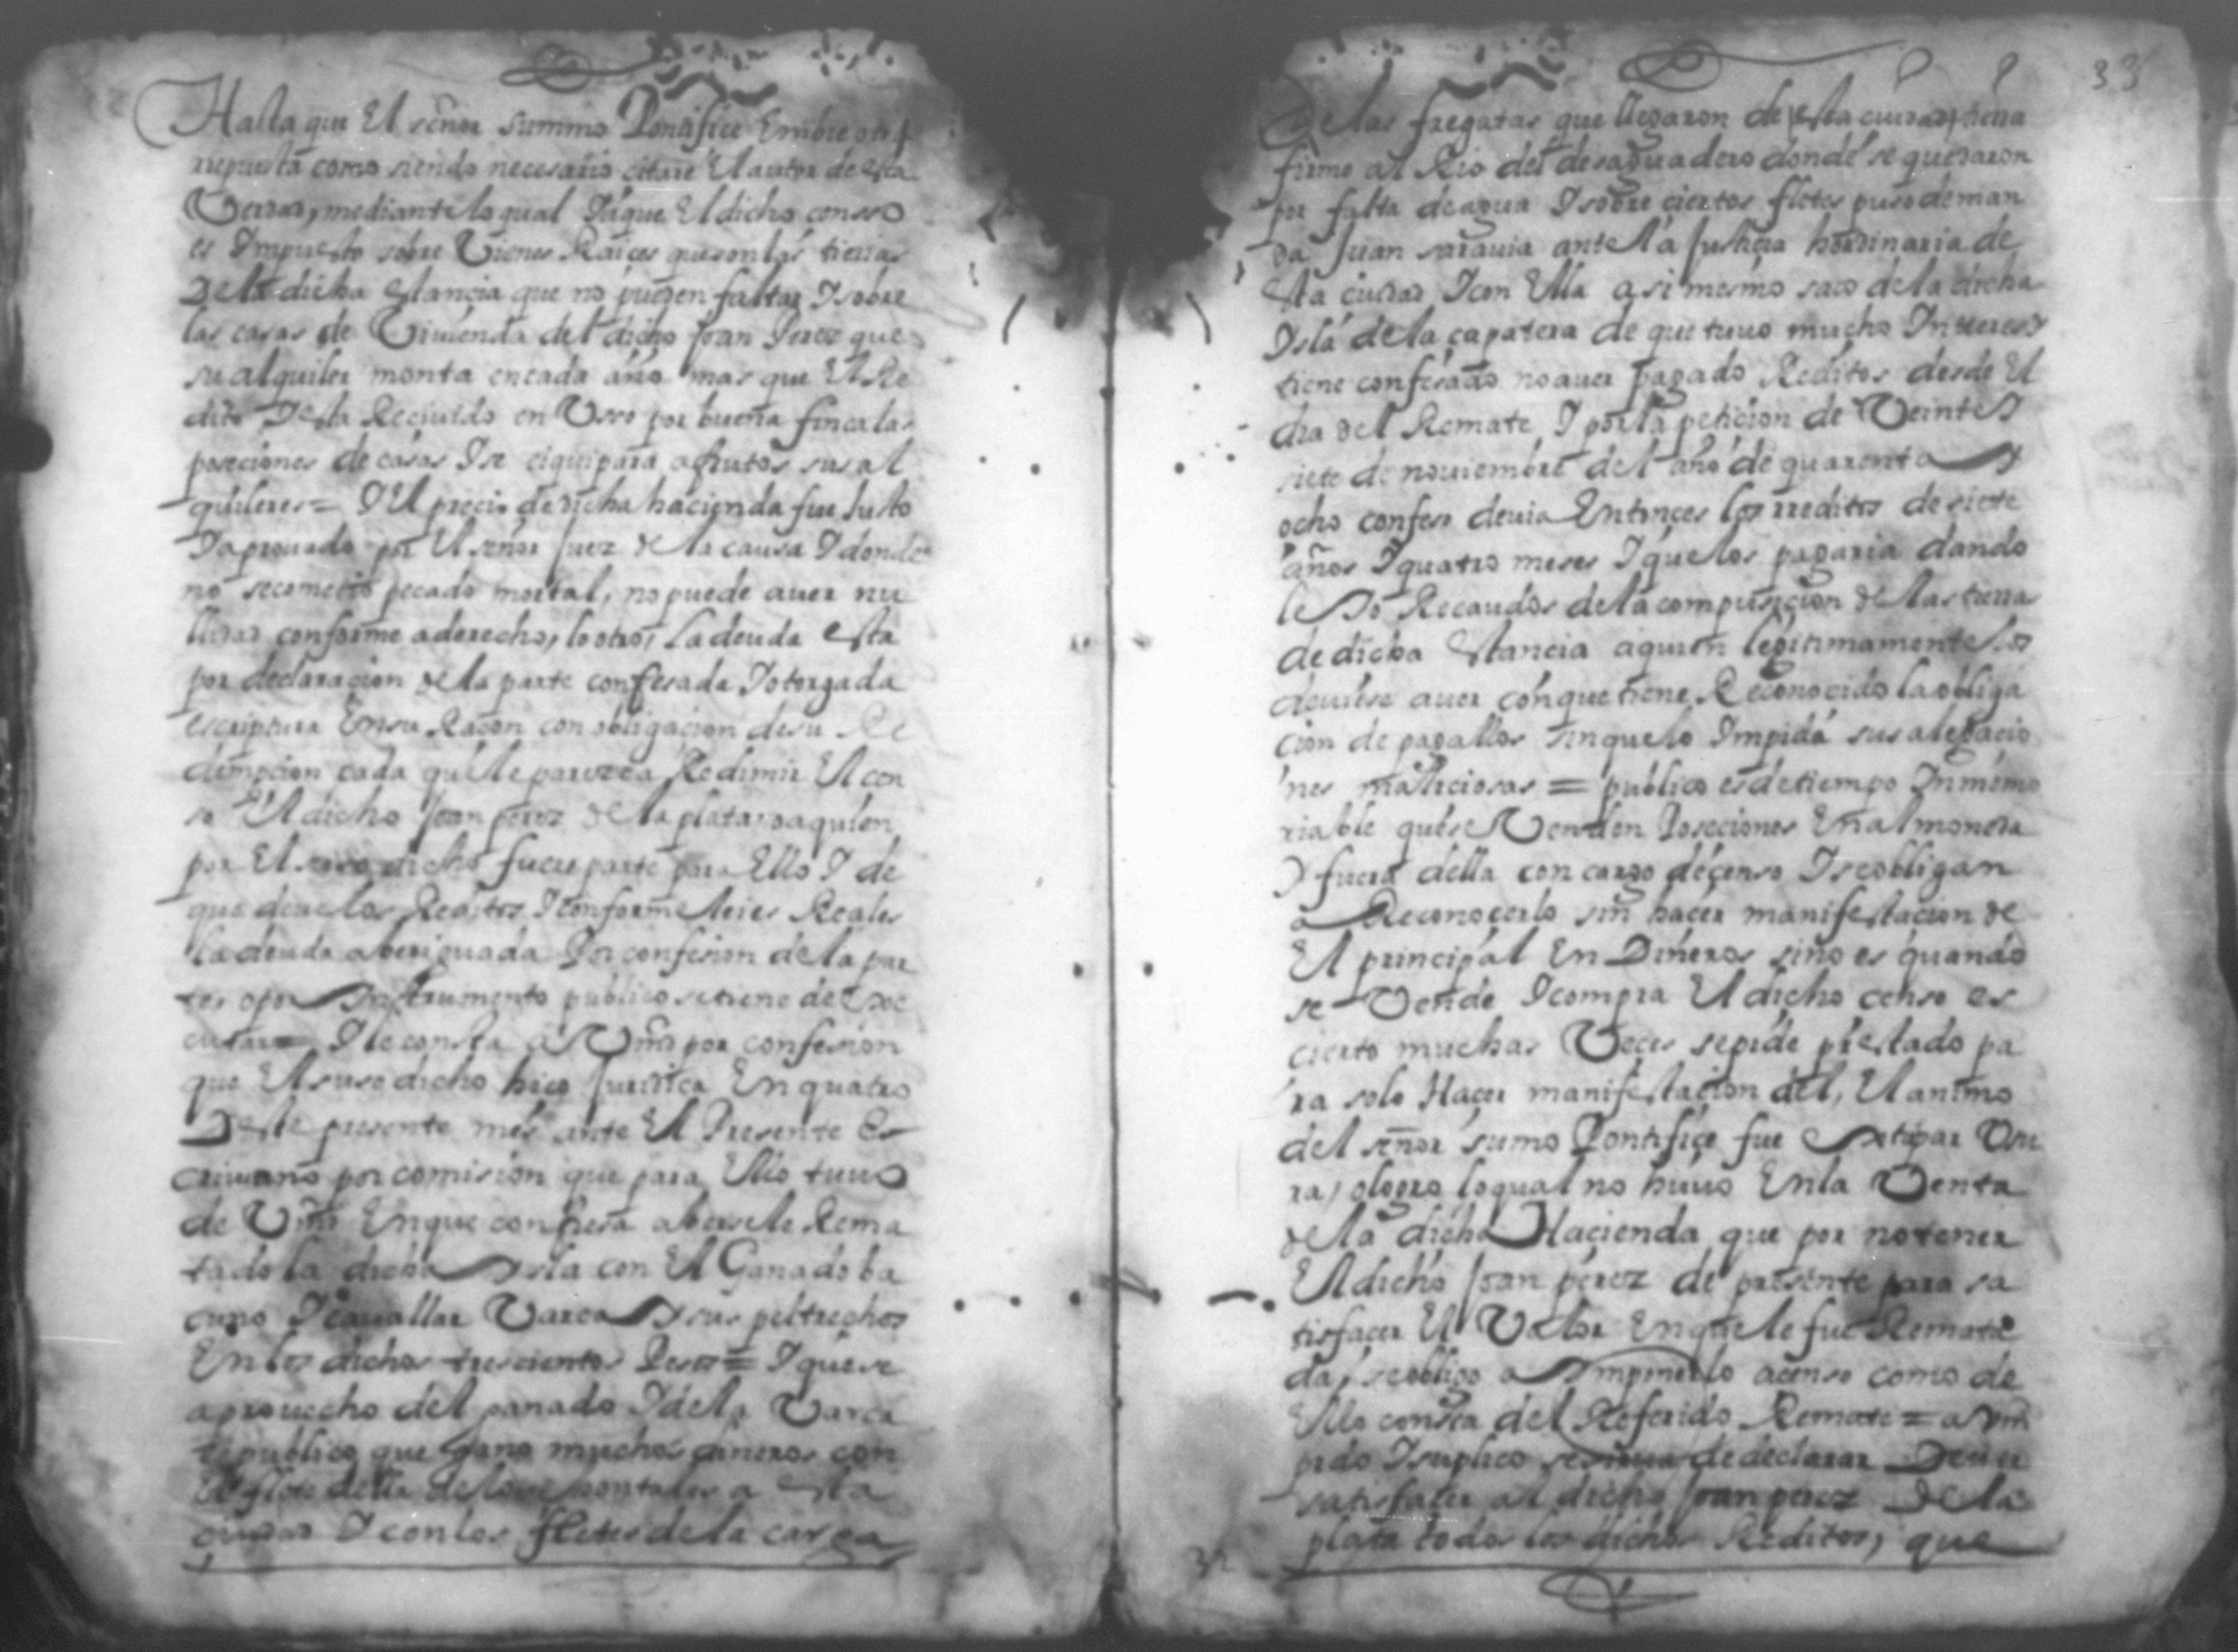 Hasta que El señor summo Pontifice Embie otra
rrepuesta como siendo necesario citare El autor de esta
Verdad, mediante lo qual Iáque El dicho consso
es Impuesto sobre Vienes Raices que son las tierras
De la dicha estancia que no pueden faltar I sobre
las casas de Viuienda del dicho Joan Perez que
su alquiler monta en cada año mas que El Re
dito Iesta Receuido en Vsso por buena finca las
poseciones de casas I se equipara a frutos sus al
quileres = I El precio de dicha hacienda fue Justo
I aprouado por El señor Juez de la causa I donde
no se cometio pecado mortal, no puede auer nu
lidad conforme a derecho, lo otro, La deuda esta
por declaracion de la parte confesada I otorgada
escriptura En su Racon con obligacion de su Re
dempcion cada que le paresca Redimir El cen
so El dicho Joan perez de la plata o a quien
por El suso dicho fuere parte para Ello I de
que deue los Reditos I conforme leies Reales
la deuda aberiguada Por confesion de la par
tes o por Instrumento publico se tiene de Exe
cutar = I le consta a Vmd por confesion
que El suso dicho hiço Juridica En quatro
Deste presente mes ante El Presente Es
criuano por comision que para Ello tuuo
de Vmd En que confiesa aberse le Rema
tado la dicha Ysla con El Ganado ba
cuno I cauallar Varca Y sus peltrechos
En los dichos trescientos Pesos = I que se
aprouecho del ganado I de la Varca
es publico que gano muchos dineros con
El flete della de los chontales a esta
ciudad I con los fletes de la carga
33
De las fregatas que llegaron de esta ciudad, tierra
firme al Rio del desaguadero donde se quedaron
por falta de agua I sobre ciertos fletes puso deman
da Juan sarauia ante la Justicia hordinaria de
esta ciudad I con Ella asimesmo saco de la dicha
Isla de la çapatera de que tuuo mucho Intteres Y
tiene confesado no auer pagado Reditos desde El
dia del Remate I por la peticion de Veinte Y
siete de nouiembre del año de quarenta Y
ocho confeso deuia Entonces los rreditos de siete
años I quatro meses I que los pagaria dando
le Yo Recaudos de la compusicion de las tierras
de dicha estancia a quien legitimamente los
deuiese auer con que tiene Reconocido la obliga
cion de pagallos sin que lo Impida sus alegacio
nes maliciosas = publico es de tiempo Inmemo
riable que se Venden Poseciones En almoneda
Y fuera della con cargo de censo I se obligan
a Reconocerlo sin hacer manifestacion de
El principal En Dineros sino es quando
se Vende I compra El dicho censo es
cierto muchas Veces se pide prestado pa
ra solo Hacer manifestacion del, El animo
del señor sumo Pontifice fue extirpar Vsu
ra, o logro lo qual no huuo En la Venta
de la dicha Hacienda que por no tener
El dicho Joan perez de presente para sa
tisfacer El Valor En que le fue Remata
da, se obligo a Imponerlo a censo como de
Ello consta del Referido Remate = a Vmd
pido I suplico se sirua de declarar Deuer
satisfacer al dicho Joan perez De la
plata todos los dichos Reditos, que